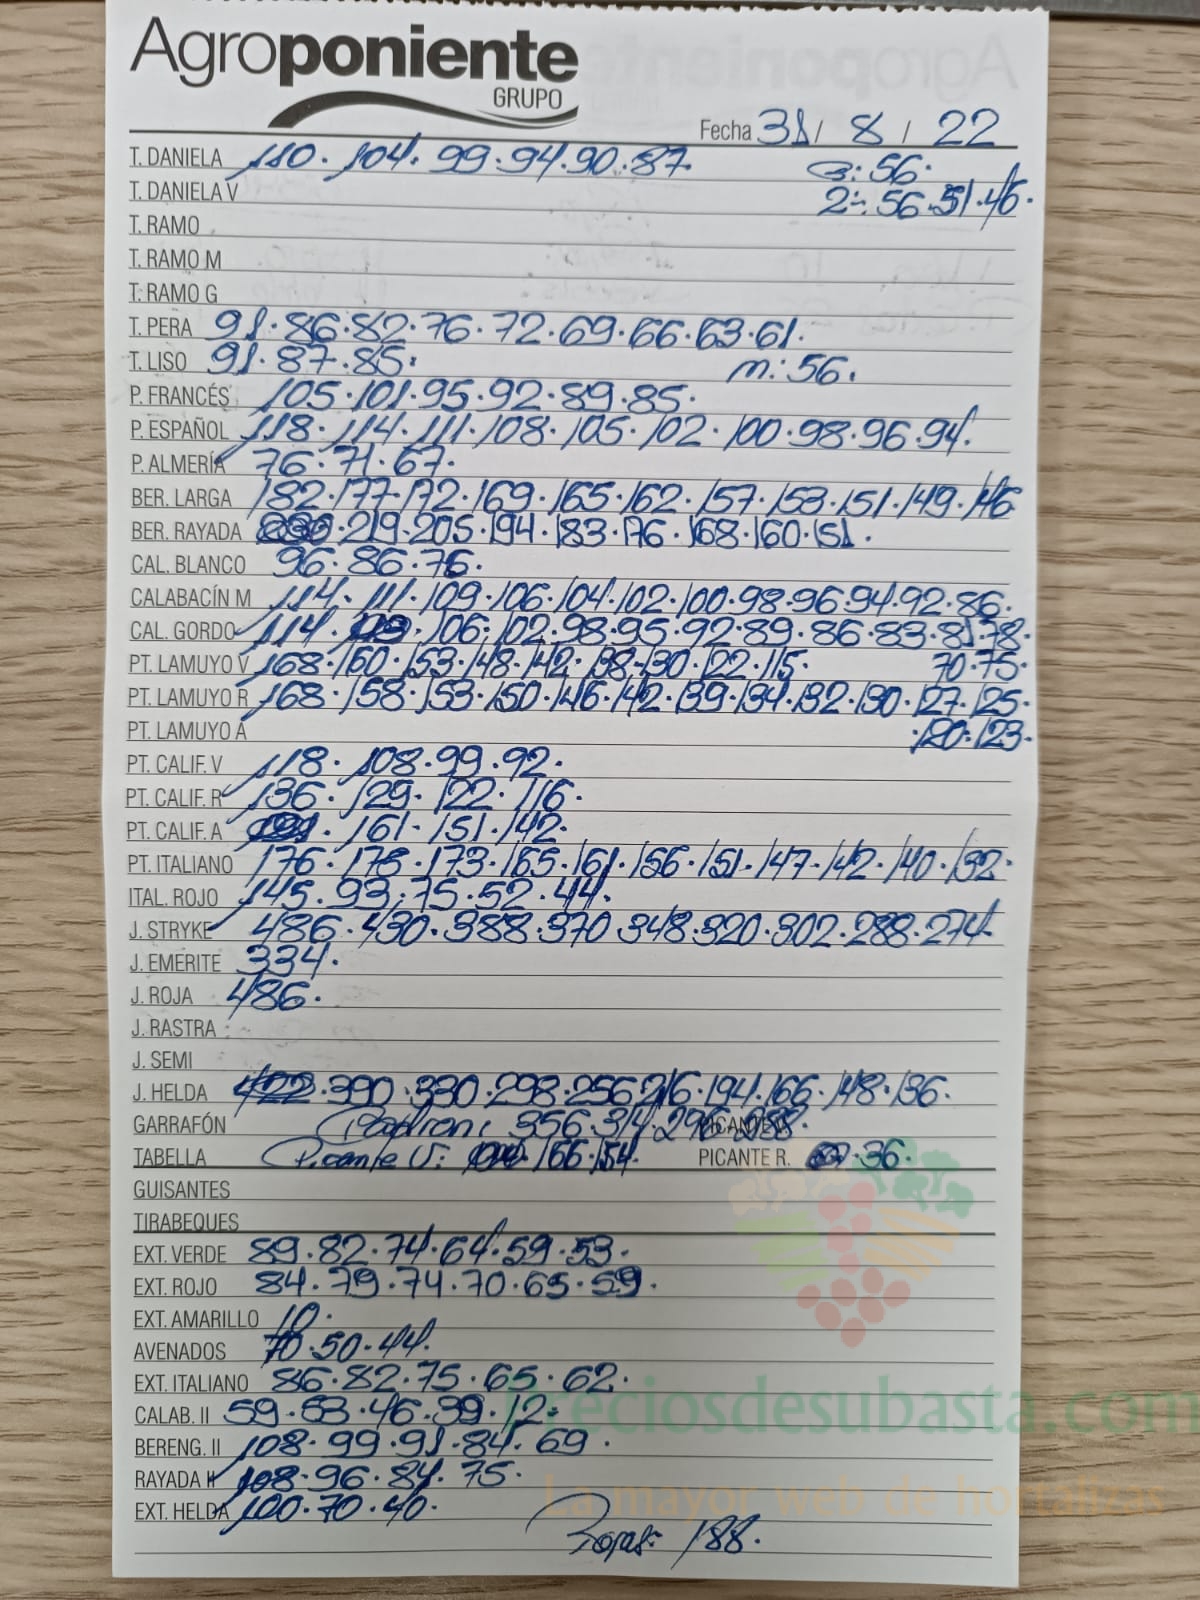 Agroponiente
GRUPO
Fecha 31 / 8 / 22
T. DANIELA 110. 104. 99. 94. 90. 87. G: 56.
T. DANIELA V 2ª: 56. 51. 46.
T. RAMO
T. RAMO M
T. RAMO G
T. PERA 91. 86. 82. 76. 72. 69. 66. 63. 61.
T. LISO 91. 87. 85. m: 56.
P. FRANCÉS 105. 101. 95. 92. 89. 85.
P. ESPAÑOL 118. 114. 111. 108. 105. 102. 100. 98. 96. 94.
P. ALMERÍA 76. 71. 67.
BER. LARGA 182. 177. 172. 169. 165. 162. 157. 153. 151. 149. 146
BER. RAYADA 219. 205. 194. 183. 176. 168. 160. 151.
CAL. BLANCO 96. 86. 76.
CALABACÍN M 114. 111. 109. 106. 104. 102. 100. 98. 96. 94. 92. 86.
CAL. GORDO 114. 106. 102. 98. 95. 92. 89. 86. 83. 81. 78.
PT. LAMUYO V 168. 160. 153. 148. 142. 138. 130. 122. 115. 70. 75.
PT. LAMUYO R 168. 158. 153. 150. 146. 142. 139. 134. 132. 130. 127. 125.
PT. LAMUYO A 120. 123.
PT. CALIF. V 118. 108. 99. 92.
PT. CALIF. R 136. 129. 122. 116.
PT. CALIF. A 161. 151. 142.
PT. ITALIANO 176. 173. 165. 161. 156. 151. 147. 142. 140. 132.
ITAL. ROJO 145. 93. 75. 52. 44.
J. STRYKE 486. 430. 388. 370. 348. 320. 302. 288. 274.
J. EMERITE 334.
J. ROJA 486.
J. RASTRA
J. SEMI
J. HELDA 422. 390. 330. 298. 256. 216. 194. 166. 148. 136.
GARRAFÓN 356. 314. 296. 288.
TABELLA Picante V: 166. 154. PICANTE R. 36.
GUISANTES
TIRABEQUES
EXT. VERDE 89. 82. 74. 64. 59. 53.
EXT. ROJO 84. 79. 74. 70. 65. 59.
EXT. AMARILLO 10.
AVENADOS 70. 50. 44.
EXT. ITALIANO 86. 82. 75. 65. 62.
CALAB. II 59. 53. 46. 39. 12.
BERENG. II 108. 99. 91. 84. 69.
RAYADA II 108. 96. 84. 75.
EXT. HELDA 100. 70. 40.
Rojas: 188.
preciosdesubasta.com
La mayor web de hortalizas